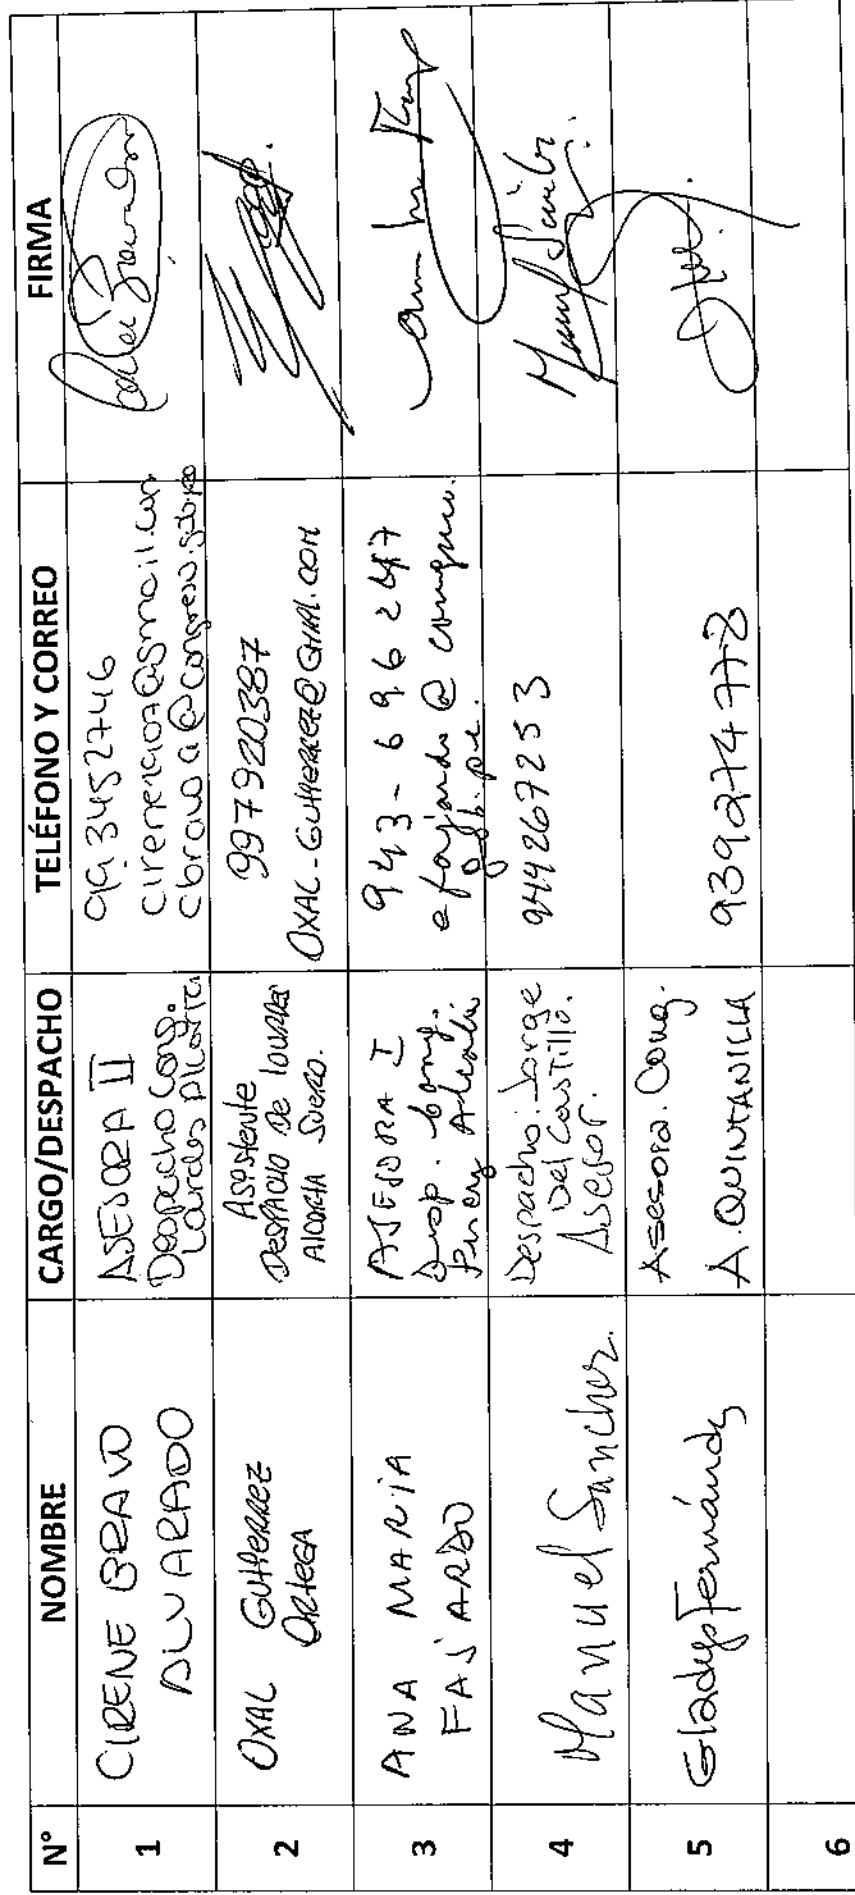 N° NOMBRE CARGO/DESPACHO TELÉFONO Y CORREO FIRMA
1
CIRENE BRAVO
ALVARADO
ASESORA II
Despacho Cong.
Lourdes Alcorta
993452746
cbravoa@congreso.gob.pe
2
OXAL GUTIERREZ
ORTEGA
Asistente
DESPACHO De LOURDES
Alcorta Suero.
997920387
OXAL-GUTIERREZ@GMAIL.COM
3
ANA MARIA
FAJARDO
ASESORA I
Desp. Cong.
943-696247
efajardo@congreso.
gob.pe.
4
Manuel Sanchez.
Despacho: Jorge
Del Castillo.
Asesor.
944267253
5
Gladys Fernández
Asesora. Cong.
A. QUINTANILLA
939274778
6